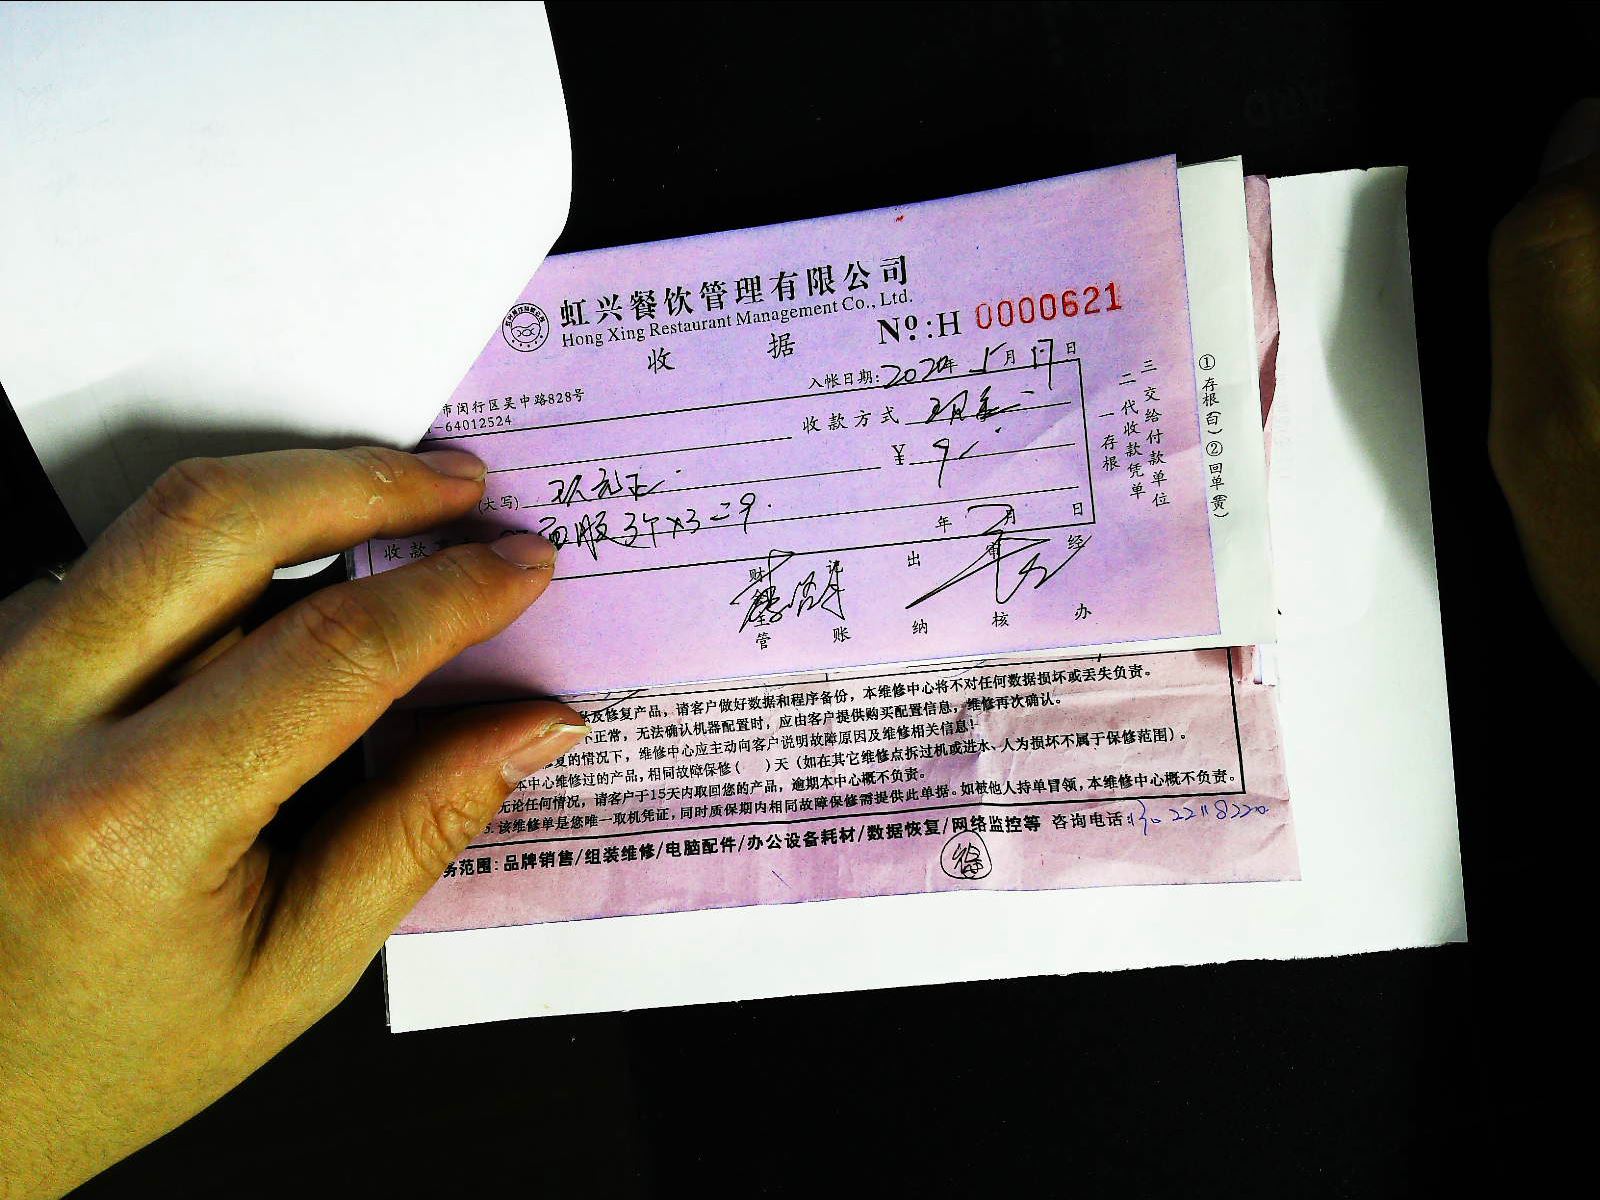 虹兴餐饮管理有限公司
Hong Xing Restaurant Management Co., Ltd.
收 据
№:H 0000621
入帐日期:2020年5月17日
市闵行区吴中路828号
-64012524
收款方式 现金
¥ 9
(大写) 玖元正
收款
面 3个×3=9
年 月 日
财管 记账 出纳 审核 经办
一存根
二代收款凭单
三交给付款单位
①存根(白)②回单(黄)
及修复产品，请客户做好数据和程序备份，本维修中心将不对任何数据损坏或丢失负责。
不正常，无法确认机器配置时，应由客户提供购买配置信息，维修再次确认。
复的情况下，维修中心应主动向客户说明故障原因及维修相关信息！
本中心维修过的产品，相同故障保修( )天（如在其它维修点拆过机或进水、人为损坏不属于保修范围）。
无论任何情况，请客户于15天内取回您的产品，逾期本中心概不负责。
5.该维修单是您唯一取机凭证，同时质保期内相同故障保修需提供此单据。如被他人持单冒领，本维修中心概不负责。
务范围：品牌销售/组装维修/电脑配件/办公设备耗材/数据恢复/网络监控等 咨询电话：